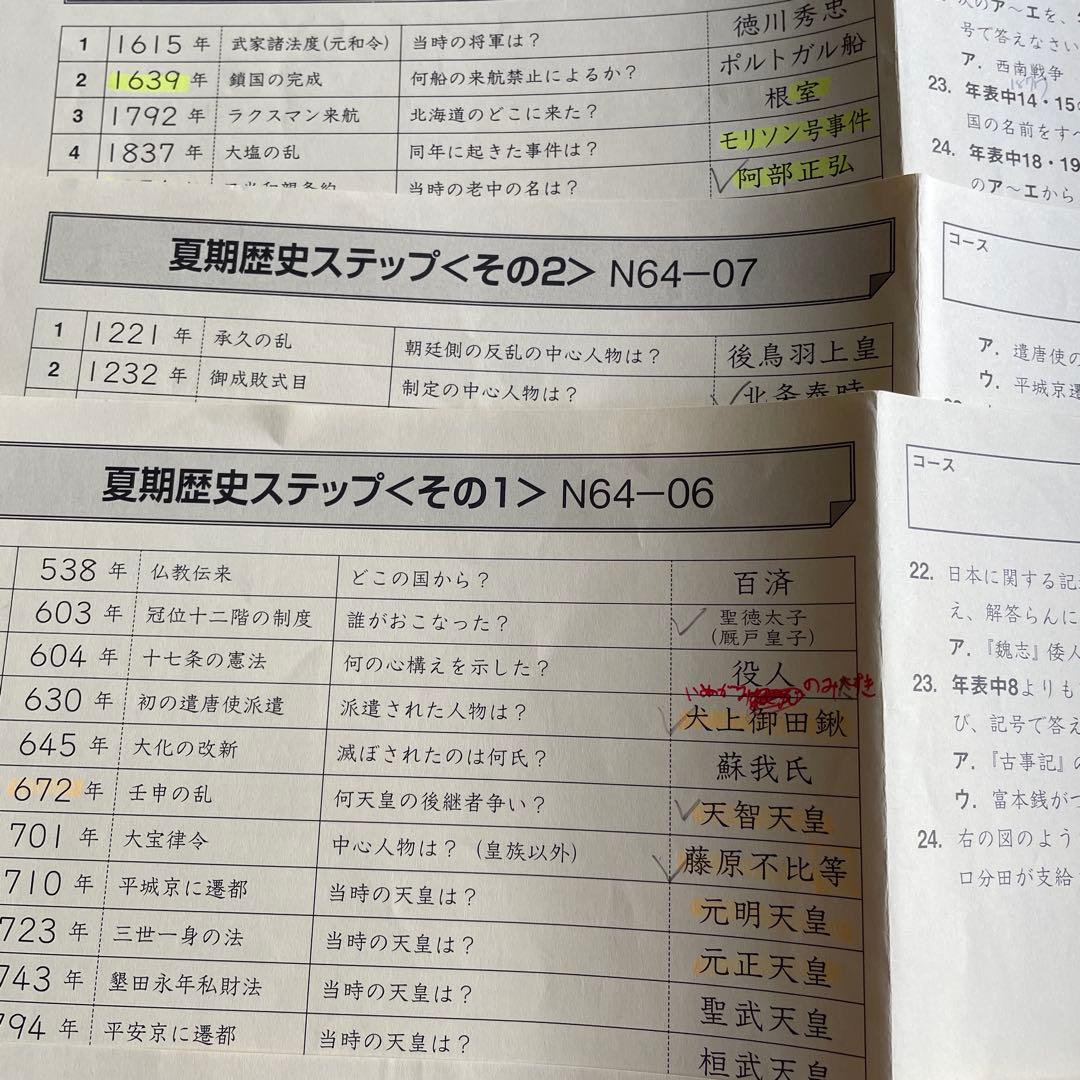 1 1615年 武家諸法度(元和令) 当時の将軍は? 徳川秀忠
2 1639年 鎖国の完成 何船の来航禁止によるか? ポルトガル船
3 1792年 ラクスマン来航 北海道のどこに来た? 根室
4 1837年 大塩の乱 同年に起きた事件は? モリソン号事件
当時の老中の名は? 阿部正弘
次のア〜エを、
号で答えなさい
ア. 西南戦争
1877
23. 年表中14・15の
国の名前をすべ
24. 年表中18・19
のア〜エから
夏期歴史ステップ<その2> N64-07
1 1221年 承久の乱 朝廷側の反乱の中心人物は? 後鳥羽上皇
2 1232年 御成敗式目 制定の中心人物は? 北条泰時
コース
ア. 遣唐使の
ウ. 平城京遷
夏期歴史ステップ<その1> N64-06
538年 仏教伝来 どこの国から? 百済
603年 冠位十二階の制度 誰がおこなった? 聖徳太子
(厩戸皇子)
604年 十七条の憲法 何の心構えを示した? 役人
630年 初の遣唐使派遣 派遣された人物は? 犬上御田鍬
645年 大化の改新 滅ぼされたのは何氏? 蘇我氏
672年 壬申の乱 何天皇の後継者争い? 天智天皇
701年 大宝律令 中心人物は?(皇族以外) 藤原不比等
710年 平城京に遷都 当時の天皇は? 元明天皇
723年 三世一身の法 当時の天皇は? 元正天皇
743年 墾田永年私財法 当時の天皇は? 聖武天皇
794年 平安京に遷都 当時の天皇は? 桓武天皇
コース
22. 日本に関する記
え、解答らんに
ア. 『魏志』倭人
23. 年表中8よりも
び、記号で答え
ア. 『古事記』の
ウ. 富本銭がつ
24. 右の図のよう
口分田が支給